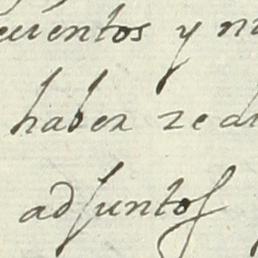 cuentos y n
haber redu
adjuntos